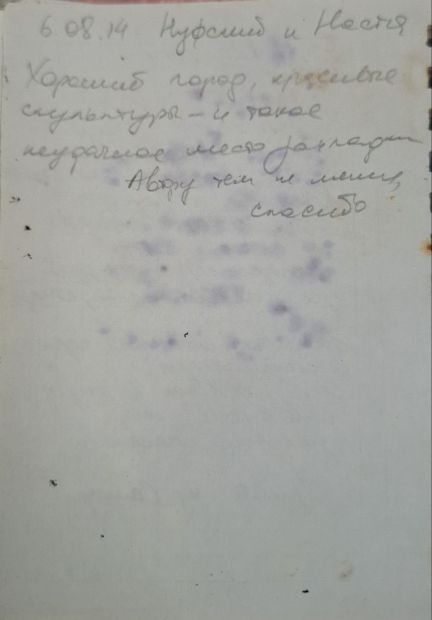 6.08.14 Нуфсиив и Настя
Хороший город, красивые
скульптуры – и такое
неудачное место закладки
Автору тем не менее,
спасибо